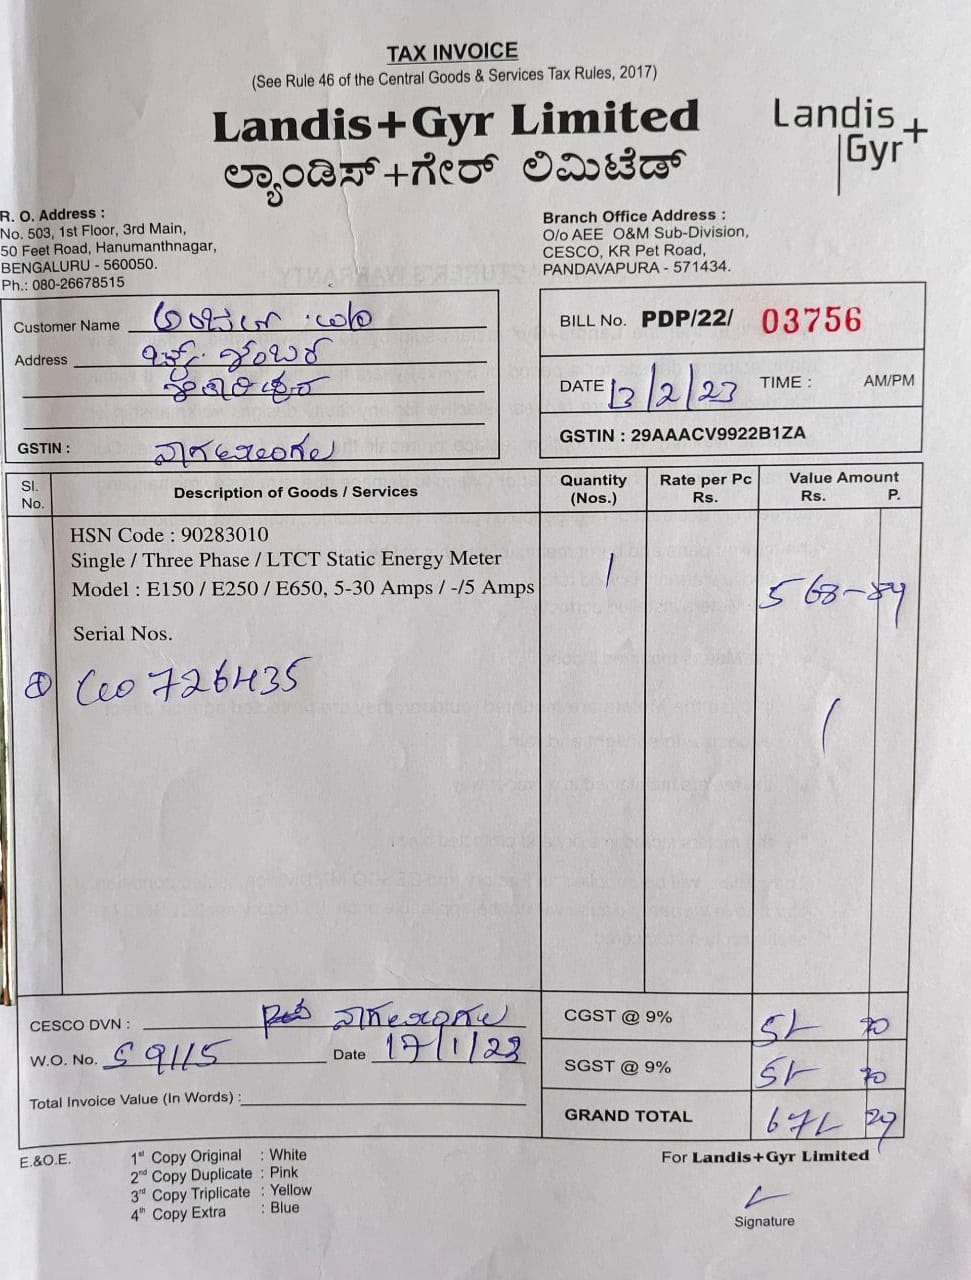 TAX INVOICE
(See Rule 46 of the Central Goods & Services Tax Rules, 2017)
Landis+Gyr Limited
ಲ್ಯಾಂಡಿಸ್+ಗೇರ್ ಲಿಮಿಟೆಡ್
Landis
Gyr+
R. O. Address :
No. 503, 1st Floor, 3rd Main,
50 Feet Road, Hanumanthnagar,
BENGALURU - 560050.
Ph.: 080-26678515
Branch Office Address :
O/o AEE O&M Sub-Division,
CESCO, KR Pet Road,
PANDAVAPURA - 571434.
Customer Name
Address
GSTIN : ನಾಗಮಂಗಲ
BILL No. PDP/22/ 03756
DATE 13/2/23 TIME : AM/PM
GSTIN : 29AAACV9922B1ZA
Sl. No. Description of Goods / Services Quantity (Nos.) Rate per Pc Rs. Value Amount Rs. P.
HSN Code : 90283010
Single / Three Phase / LTCT Static Energy Meter 1
Model : E150 / E250 / E650, 5-30 Amps / -/5 Amps 568-84
Serial Nos.
726435
CESCO DVN : ನಾಗಮಂಗಲ
W.O. No. 59115 Date 17/1/23
Total Invoice Value (In Words) :
CGST @ 9% 51 70
SGST @ 9% 51 70
GRAND TOTAL 671 24
E.&O.E.
1st Copy Original : White
2nd Copy Duplicate : Pink
3rd Copy Triplicate : Yellow
4th Copy Extra : Blue
For Landis+Gyr Limited
Signature